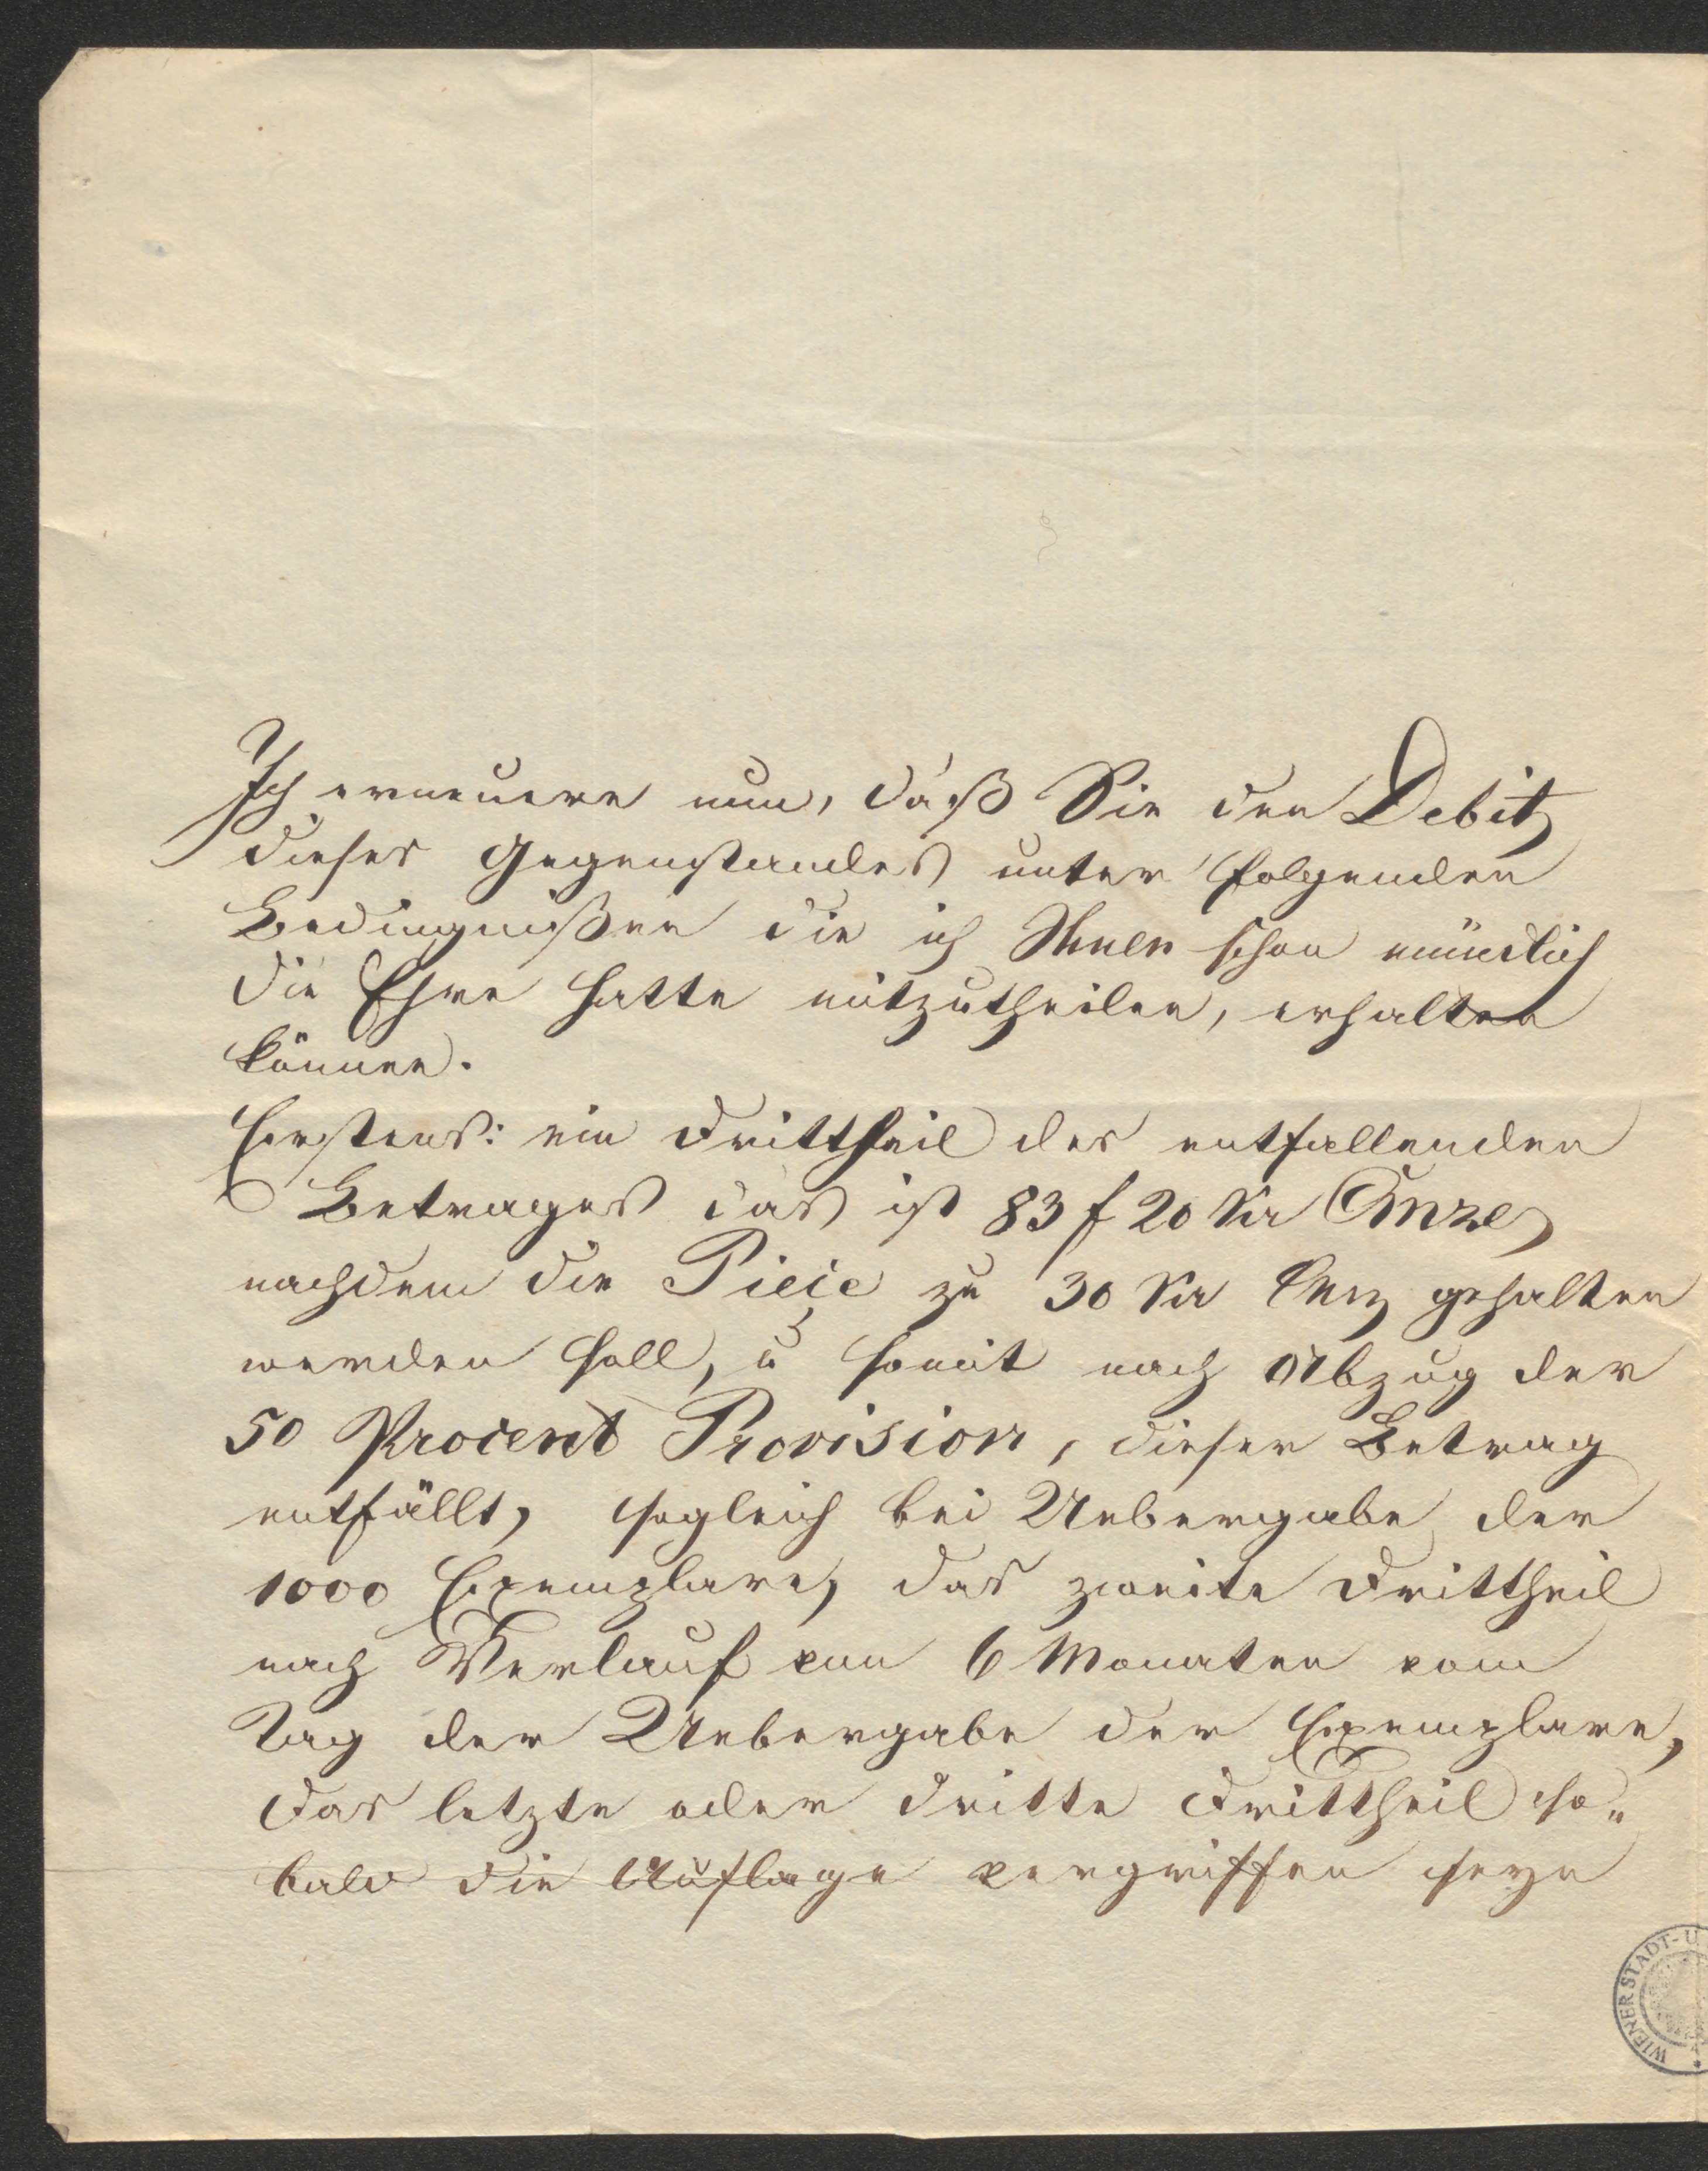 Ich erneuere nun, daß Sie den Debit
dieses Gegenstandes unter folgenden
Bedingnißen die ich Ihnen schon mündlich
die Ehre hatte mitzutheilen, erhalten
können.
Erstens: ein Drittheil des entfallenden
Betrages das ist 83 f 20 Kr
nachdem die Pieçe zu 30 Kr CMz gehalten
werden soll, u somit nach Abzug der
50 Procent Provision, dieser Betrag
entfällt, sogleich bei Uebergabe der
1000 Exemplare, das zweite Drittheil
nach Verlauf von 6 Monaten vom
Tag der Uebergabe der Exemplare,
das letzte oder dritte Drittheil so„
bald die Auflage vergriffen seyn
WIENER STADT- U